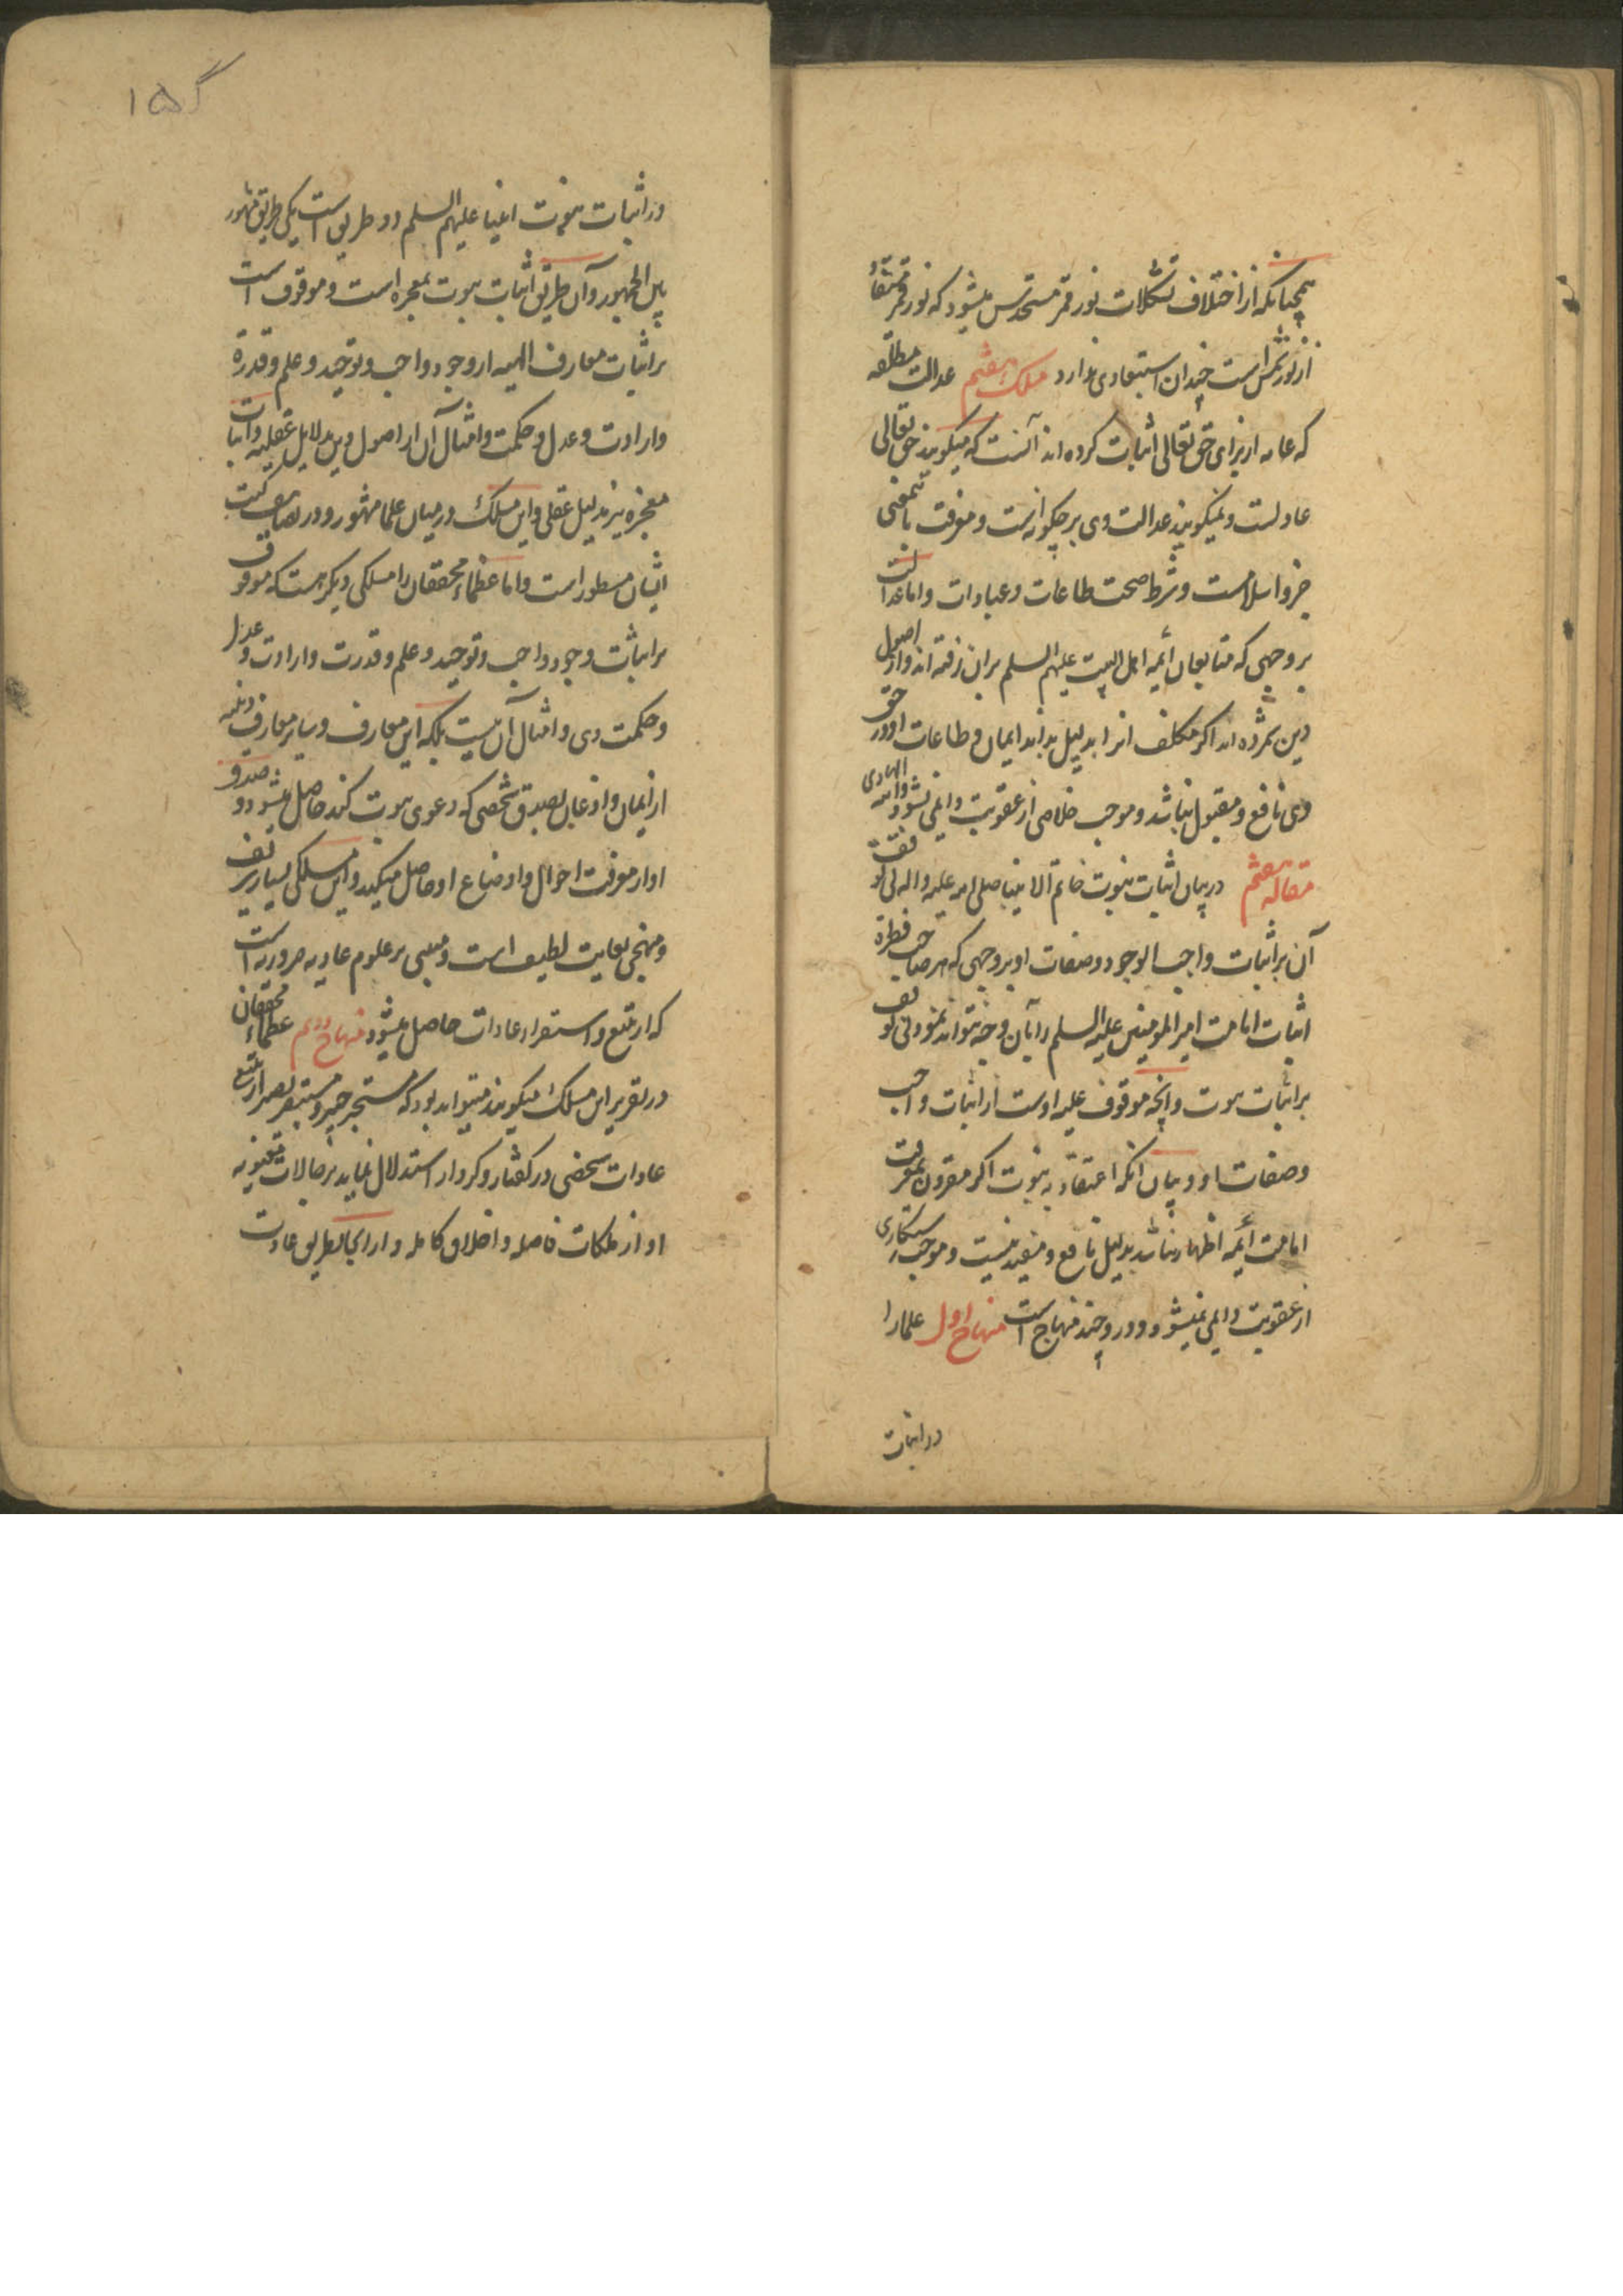 همچنانکه از اختلاف تشکلات نور قمر مستحدس میشود که نور قمر مستفاد
از نور شمس است چندان استبعادی ندارد مسلک هفتم عدالت مطلقه
که عامه از برای حق تعالی اثبات کرده اند آنست که میکویند حق تعالی
عادلست و نمیکویند عدالت وی بر چکونه است و معرفت باین معنی
جزو اسلامست و شرط صحت طاعات و عبادات و اما عدالت
بر وجهی که متابعان أئمه اهل البیت علیهم السلم بران رفته اند و از اصول
دین شمرده اند اکر مکلف انرا بدلیل بداند ایمان و طاعات او در حق
وی نافع و مقبول نباشد و موجب خلاصی از عقوبت دایمی نشود والله الهادی
مقاله هفتم در بیان اثبات نبوت خاتم الانبیا صلی الله علیه واله بی توقف
آن بر اثبات واجب الوجود و صفات او بر وجهی که هر صاحب فطرة
اثبات امامت امیر المومنین علیه السلم را بآن وجه تواند نمود بی توقف
بر اثبات نبوت و آنچه موقوف علیه اوست از اثبات واجب
و صفات او و بیان انکه اعتقاد به نبوت اکر مقرون بمعرفت
امامت أئمه اطهار نباشد بدلیل نافع و مفید نیست و موجب رستکاری
از عقوبت دایمی نمیشود و در و چند منهاج است منهاج اول علما را
در اثبات
۱۵
در اثبات نبوت انبیا علیهم السلم دو طریق است یکی طریق مشهور
بین الجمهور و آن طریق اثبات نبوت بمعجزه است و موقوف است
بر اثبات معارف الهیه از وجود واجب و توحید و علم و قدرة
و ارادت و عدل و حکمت و امثال آن از اصول دین بدلایل عقلیه و اثبات
معجزه نیز بدلیل عقلی و این مسلک در میان علما مشهور و در تصانیف کتب
ایشان مسطور است و اما عظماء محققان را مسلکی دیکر هست که موقوف
بر اثبات وجود واجب و توحید و علم و قدرت و ارادت و عدل
و حکمت وی و امثال آن نیست بلکه این معارف و سایر معارف دینیه
از ایمان و اذعان بصدق شخصی که دعوی نبوت کند حاصل میشود و صدق
او از معرفت احوال و اوضاع او حاصل میکنید و این مسلکی بسیار شریف
و منهجی بغایت لطیف است و مبنی بر علوم عادیه ضروریه است
که از تتبع و استقرار عادات حاصل میشود منهاج دویم عظماء محققان
در تقریر این مسلک میکویند میتواند بود که مستخبر خبیر و مستبصر بصیر از تتبع
عادات شخصی در کفتار و کردار استدلال نماید بر حالات معنویه
او از ملکات فاضله و اخلاق کامله و از اینجا بطریق عادت